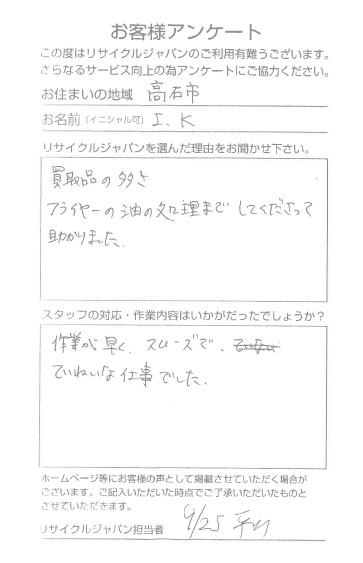 お客様アンケート
この度はリサイクルジャパンのご利用有難うございます。
さらなるサービス向上の為アンケートにご協力ください。
お住まいの地域 高石市
お名前(イニシャル可) I.K
リサイクルジャパンを選んだ理由をお聞かせ下さい。
買取品の多さ
フライヤーの油の処理まで してくださって
助かりました.
スタッフの対応・作業内容はいかがだったでしょうか?
作業が早く、スムーズで、
ていねいな仕事でした.
ホームページ等にお客様の声として掲載させていただく場合が
ございます。ご記入いただいた時点でご了承いただいたものと
させていただきます。
リサイクルジャパン担当者 9/25